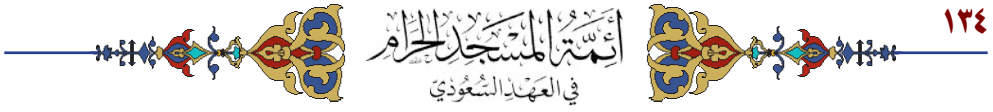 ١٣٤
أئمة المسجد الحرام
في العهد السعودي